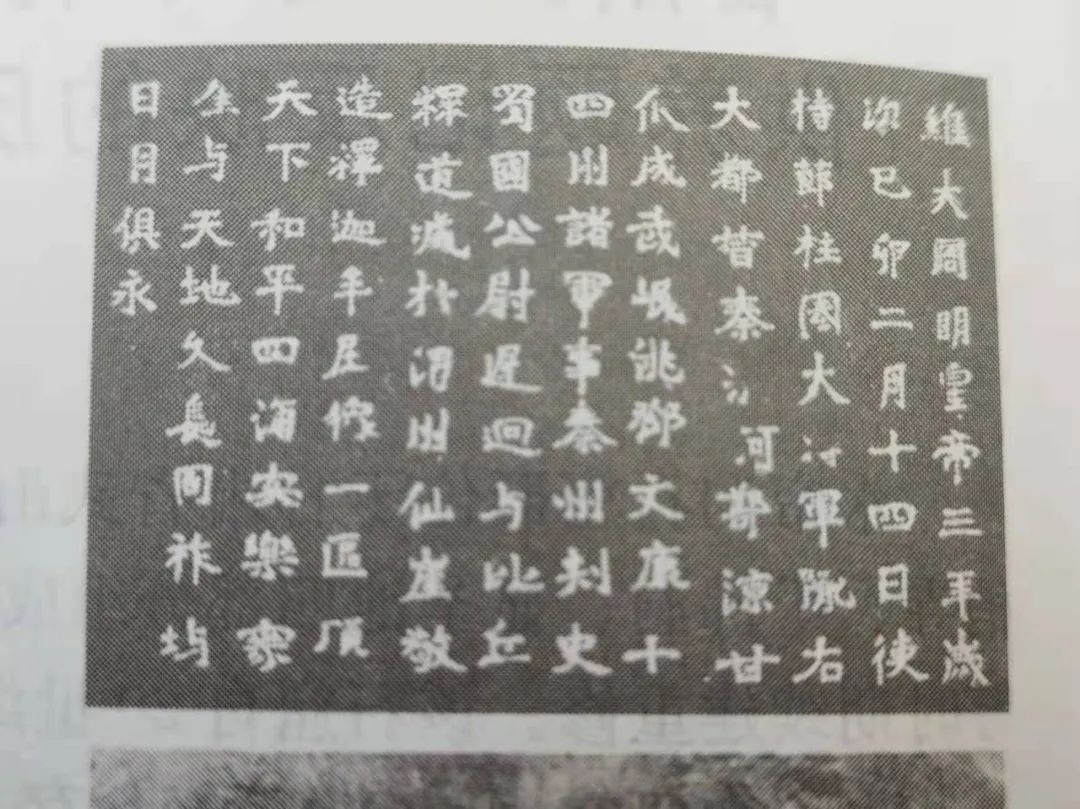 維大周明皇帝三年歲
次己卯二月十四日使
持節柱國大將軍隴右
大都督秦渭河鄯涼甘
瓜成武岷洮鄧文康十
四州諸軍事秦州刺史
蜀國公尉遲迥与比丘
釋道藏於渭州仙崖敬
造釋迦牟尼像一區願
天下和平四海安樂衆
生与天地久長周祚与
日月俱永